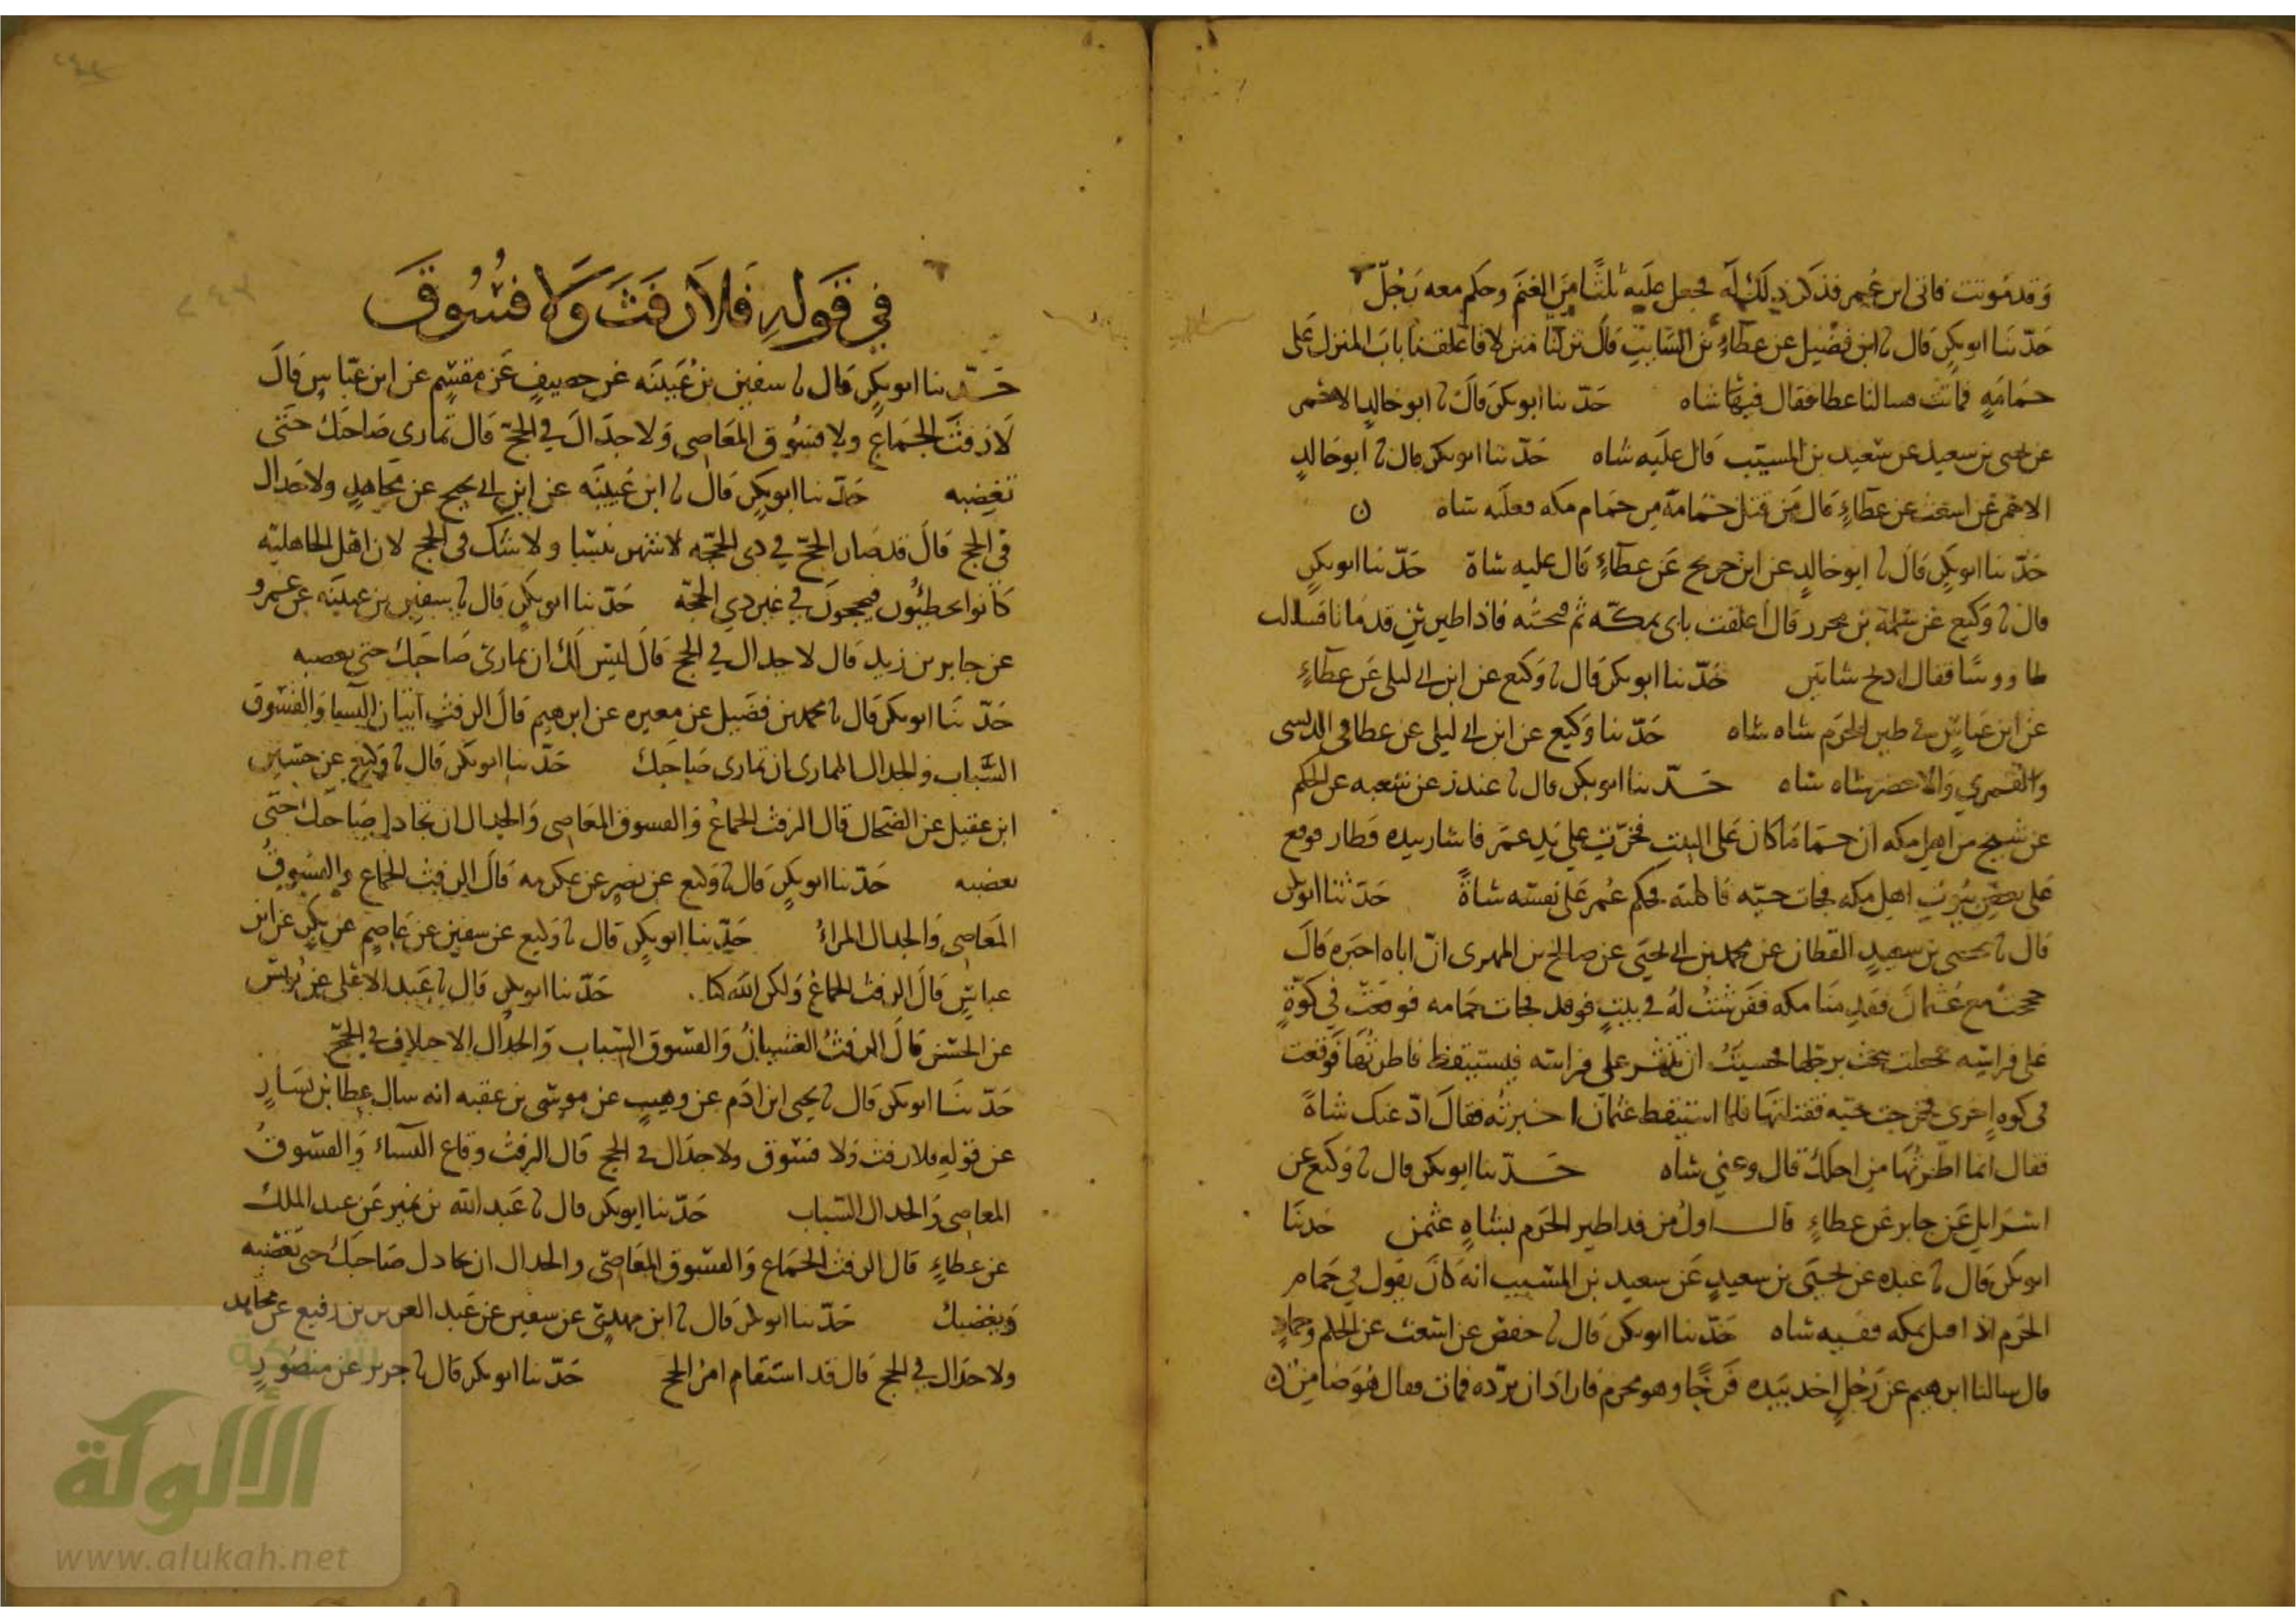 وقد موتت فاتى ابن عمر فذكر ذلك له فجعل عليه ثلثا من الغنم وحكم معه رجل
حدثنا ابو بكر قال نا ابن فضيل عن عطاء بن السايب قال نزلنا منزلا فاغلقنا باب المنزل على
حمامه فماتت فسالنا عطا فقال فيها شاه حدثنا ابو بكر قال نا ابو خالد الاحمر
عن يحيى بن سعيد عن سعيد بن المسيب قال عليه شاه حدثنا ابو بكر قال نا ابو خالد
الاحمر عن اشعث عن عطاء قال من قتل حمامة من حمام مكه فعليه شاه ن
حدثنا ابو بكر قال نا ابو خالد عن ابن جريج عن عطاء قال عليه شاة حدثنا ابو بكر
قال نا وكيع عن سلمة بن محرر قال اغلقت بابى بمكه ثم فتحته فاذا طيرين قد ماتا فسالت
طاووسا فقال اذبح شاتين حدثنا ابو بكر قال نا وكيع عن ابن ابي ليلى عن عطاء
عن ابن عباس في طير الحرم شاه شاه حدثنا وكيع عن ابن ابي ليلى عن عطا في الدبسى
والقمري والاخضر شاه شاه حدثنا ابو بكر قال نا غندر عن شعبه عن الحكم
عن شيخ من اهل مكه ان حماما كان على البيت فخرت على يد عمر فاشار بيده فطار فوقع
على بعض بيوت اهل مكه فجات حيه فاكلته فحكم عمر على نفسه شاة حدثنا ابو بكر
قال نا يحيى بن سعيد القطان عن محمد بن ابي يحيى عن صالح بن المهدى ان اباه اخبره قال
حججت مع عثمان فقدمنا مكه ففرشت له في بيت فرقد فجات حمامه فوقعت في كوة
على فراشه فجعلت تبحث برجلها فخشيت ان تنثر على فراشه فيستيقظ فاطرتها فوقعت
في كوه اخرى فخرجت حيه فقتلتها فلما استيقظ عثمان اخبرته فقال اد عنك شاة
فقال انما اطرتها من اجلك قال وعني شاه حدثنا ابو بكر قال نا وكيع عن
اسرايل عن جابر عن عطاء قال اول من فدا طير الحرم بشاه عثمن حدثنا
ابو بكر قال نا عبده عن يحيى بن سعيد عن سعيد بن المسيب انه كان يقول في حمام
الحرم اذا قتل بمكه ففيه شاه حدثنا ابو بكر قال نا حفص عن اشعث عن الحكم وحماد
قال سالنا ابرهيم عن رجل اخذ بيده فرخا وهو محرم فاراد ان يرده فمات فقال هو ضامن ن
في قوله فلا رفث ولا فسوق
حدثنا ابو بكر قال نا سفين بن عيينه عن خصيف عن مقسم عن ابن عباس قال
لا رفث الجماع ولا فسوق المعاصى ولا جدال في الحج قال تمارى صاحبك حتى
تغضبه حدثنا ابو بكر قال نا ابن عيينه عن ابن ابي نجيح عن مجاهد ولا جدال
في الحج قال قد صار الحج في ذى الحجه لا شهر ينسا ولا شك في الحج لان اهل الجاهليه
كانوا يخطئون فيحجون في غير ذي الحجه حدثنا ابو بكر قال نا سفين بن عيينه عن عمرو
عن جابر بن زيد قال لا جدال في الحج قال ليس لك ان تمارى صاحبك حتى تغضبه
حدثنا ابو بكر قال نا محمد بن فضيل عن مغيره عن ابرهيم قال الرفث اتيان النسا والفسوق
السباب والجدال المماراه ان تمارى صاحبك حدثنا ابو بكر قال نا وكيع عن حسين
ابن عقيل عن الضحاك قال الرفث الجماع والفسوق المعاصى والجدال ان تجادل صاحبك حتى
تغضبه حدثنا ابو بكر قال نا وكيع عن نضر عن عكرمه قال الرفث الجماع والفسوق
المعاصى والجدال المراء حدثنا ابو بكر قال نا وكيع عن سفين عن عاصم عن بكر عن ابن
عباس قال الرفث الجماع ولكن الله كنا حدثنا ابو بكر قال نا عبد الاعلى عن يونس
عن الحسن قال الرفث الغشيان والفسوق السباب والجدال الاختلاف في الحج
حدثنا ابو بكر قال نا يحيى ابن ادم عن وهيب عن موسى بن عقبه انه سال عطا بن يسار
عن قوله فلا رفث ولا فسوق ولا جدال في الحج قال الرفث وقاع النساء والفسوق
المعاصى والجدال السباب حدثنا ابو بكر قال نا عبد الله بن نمير عن عبد الملك
عن عطاء قال الرفث الجماع والفسوق المعاصى والجدال ان تجادل صاحبك حتى تغضبه
ويغضبك حدثنا ابو بكر قال نا ابن مهدي عن سفين عن عبد العزيز بن رفيع عن مجاهد
ولا جدال في الحج قال قد استقام امر الحج حدثنا ابو بكر قال نا جرير عن منصور
شبكة
الألوكة
www.alukah.net